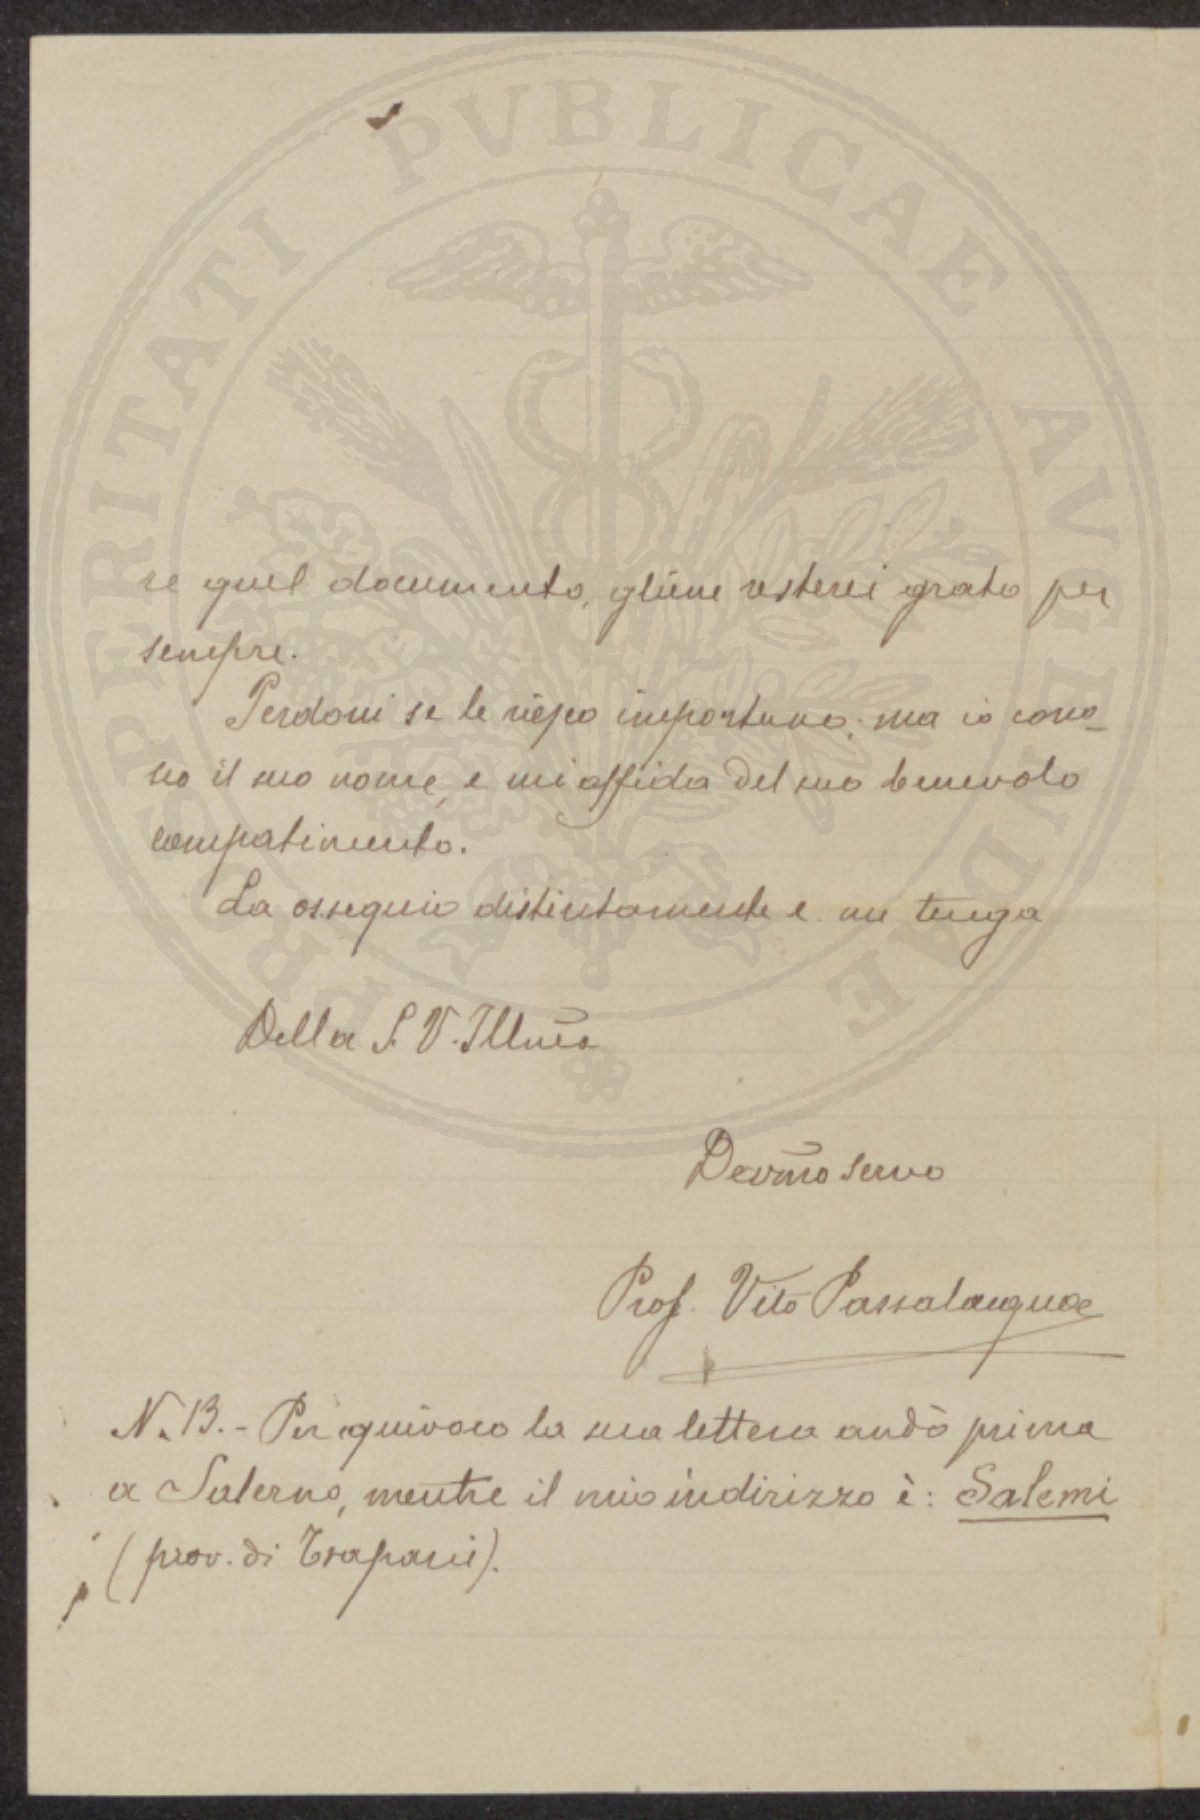 PROSPERITATI PVBLICAE AVGENDAE
re quel documento, gliene resterei grato per
sempre.
Perdoni se le riesco importuno; ma io cono-
sco il suo nome, e mi affida del suo benevolo
compatimento.
La ossequio distintamente e me tenga
Della S. V. Illma
Devmo servo
Prof. Vito Passalacqua
N.B. - Per equivoco la sua lettera andò prima
a Salerno, mentre il mio indirizzo è: Salemi
(prov. di Trapani).